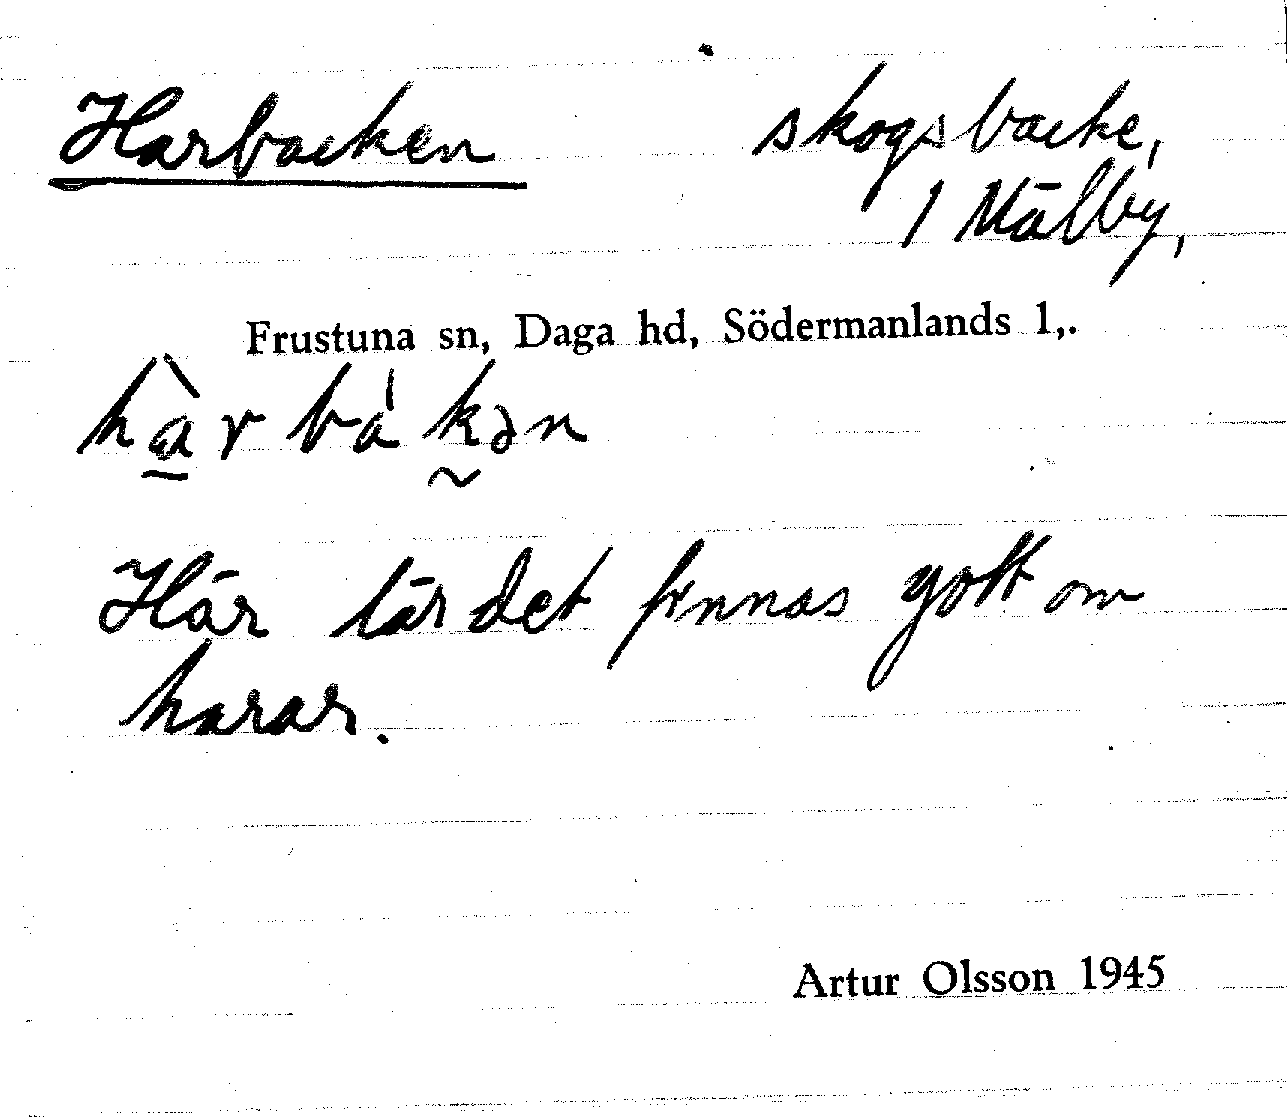 Harbacken skogsbacke,
/ Mälby,
Frustuna sn, Daga hd, Södermanlands l,.
hàrbákən
Här lär det finnas gott om
harar.
Artur Olsson 1945